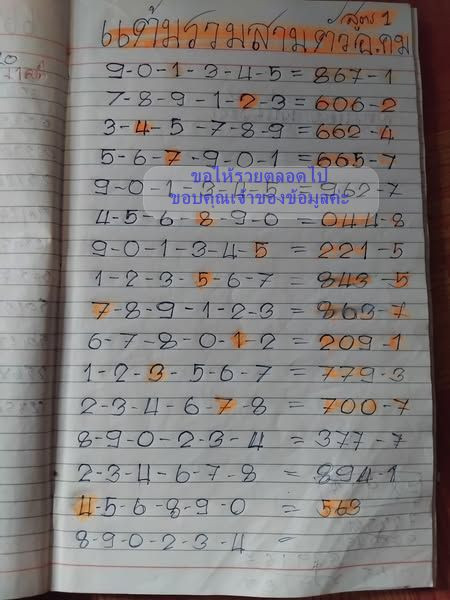 สูตร 1
แต้มรวมสามตัว อ.คม
9-0-1-3-4-5 = 867-1
7-8-9-1-2-3 = 606-2
3-4-5-7-8-9 = 662-4
5-6-7-9-0-1 = 665-7
ขอให้รวยตลอดไป
9-0-1-3-4-5 = 962-7
ขอบคุณเจ้าของข้อมูลค่ะ
4-5-6-8-9-0 = 044-8
9-0-1-3-4-5 = 221-5
1-2-3-5-6-7 = 843-5
7-8-9-1-2-3 = 863-7
6-7-8-0-1-2 = 209-1
1-2-3-5-6-7 = 779-3
2-3-4-6-7-8 = 700-7
8-9-0-2-3-4 = 377-7
2-3-4-6-7-8 = 894-1
4-5-6-8-9-0 = 563
8-9-0-2-3-4 =